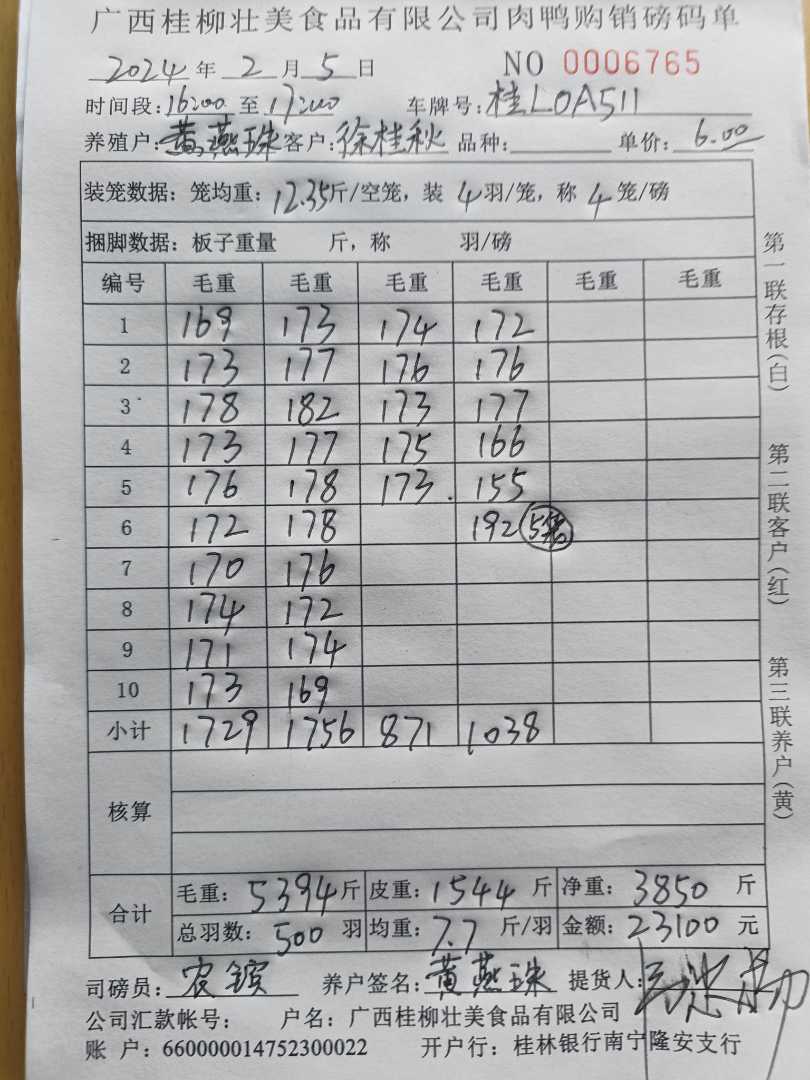 广西桂柳壮美食品有限公司肉鸭购销磅码单
2024 年 2 月 5 日 NO 0006765
时间段: 16:00 至 17:00 车牌号: 桂L0A511
养殖户: 黄燕珠 客户: 徐桂秋 品种: 单价: 6.00
装笼数据: 笼均重: 12.35 斤/空笼, 装 4 羽/笼, 称 4 笼/磅
捆脚数据: 板子重量 斤, 称 羽/磅
编号 毛重 毛重 毛重 毛重 毛重 毛重
1 169 173 174 172
2 173 177 176 176
3 178 182 173 177
4 173 177 175 166
5 176 178 173. 155
6 172 178 192 5笼
7 170 176
8 174 172
9 171 174
10 173 169
小计 1729 1756 871 1038
核算
合计
毛重: 5394 斤 皮重: 1544 斤 净重: 3850 斤
总羽数: 500 羽 均重: 7.7 斤/羽 金额: 23100 元
司磅员: 农镔 养户签名: 黄燕珠 提货人:
公司汇款帐号: 户名: 广西桂柳壮美食品有限公司
账 户: 660000014752300022 开户行: 桂林银行南宁隆安支行
第一联存根(白)
第二联客户(红)
第三联养户(黄)